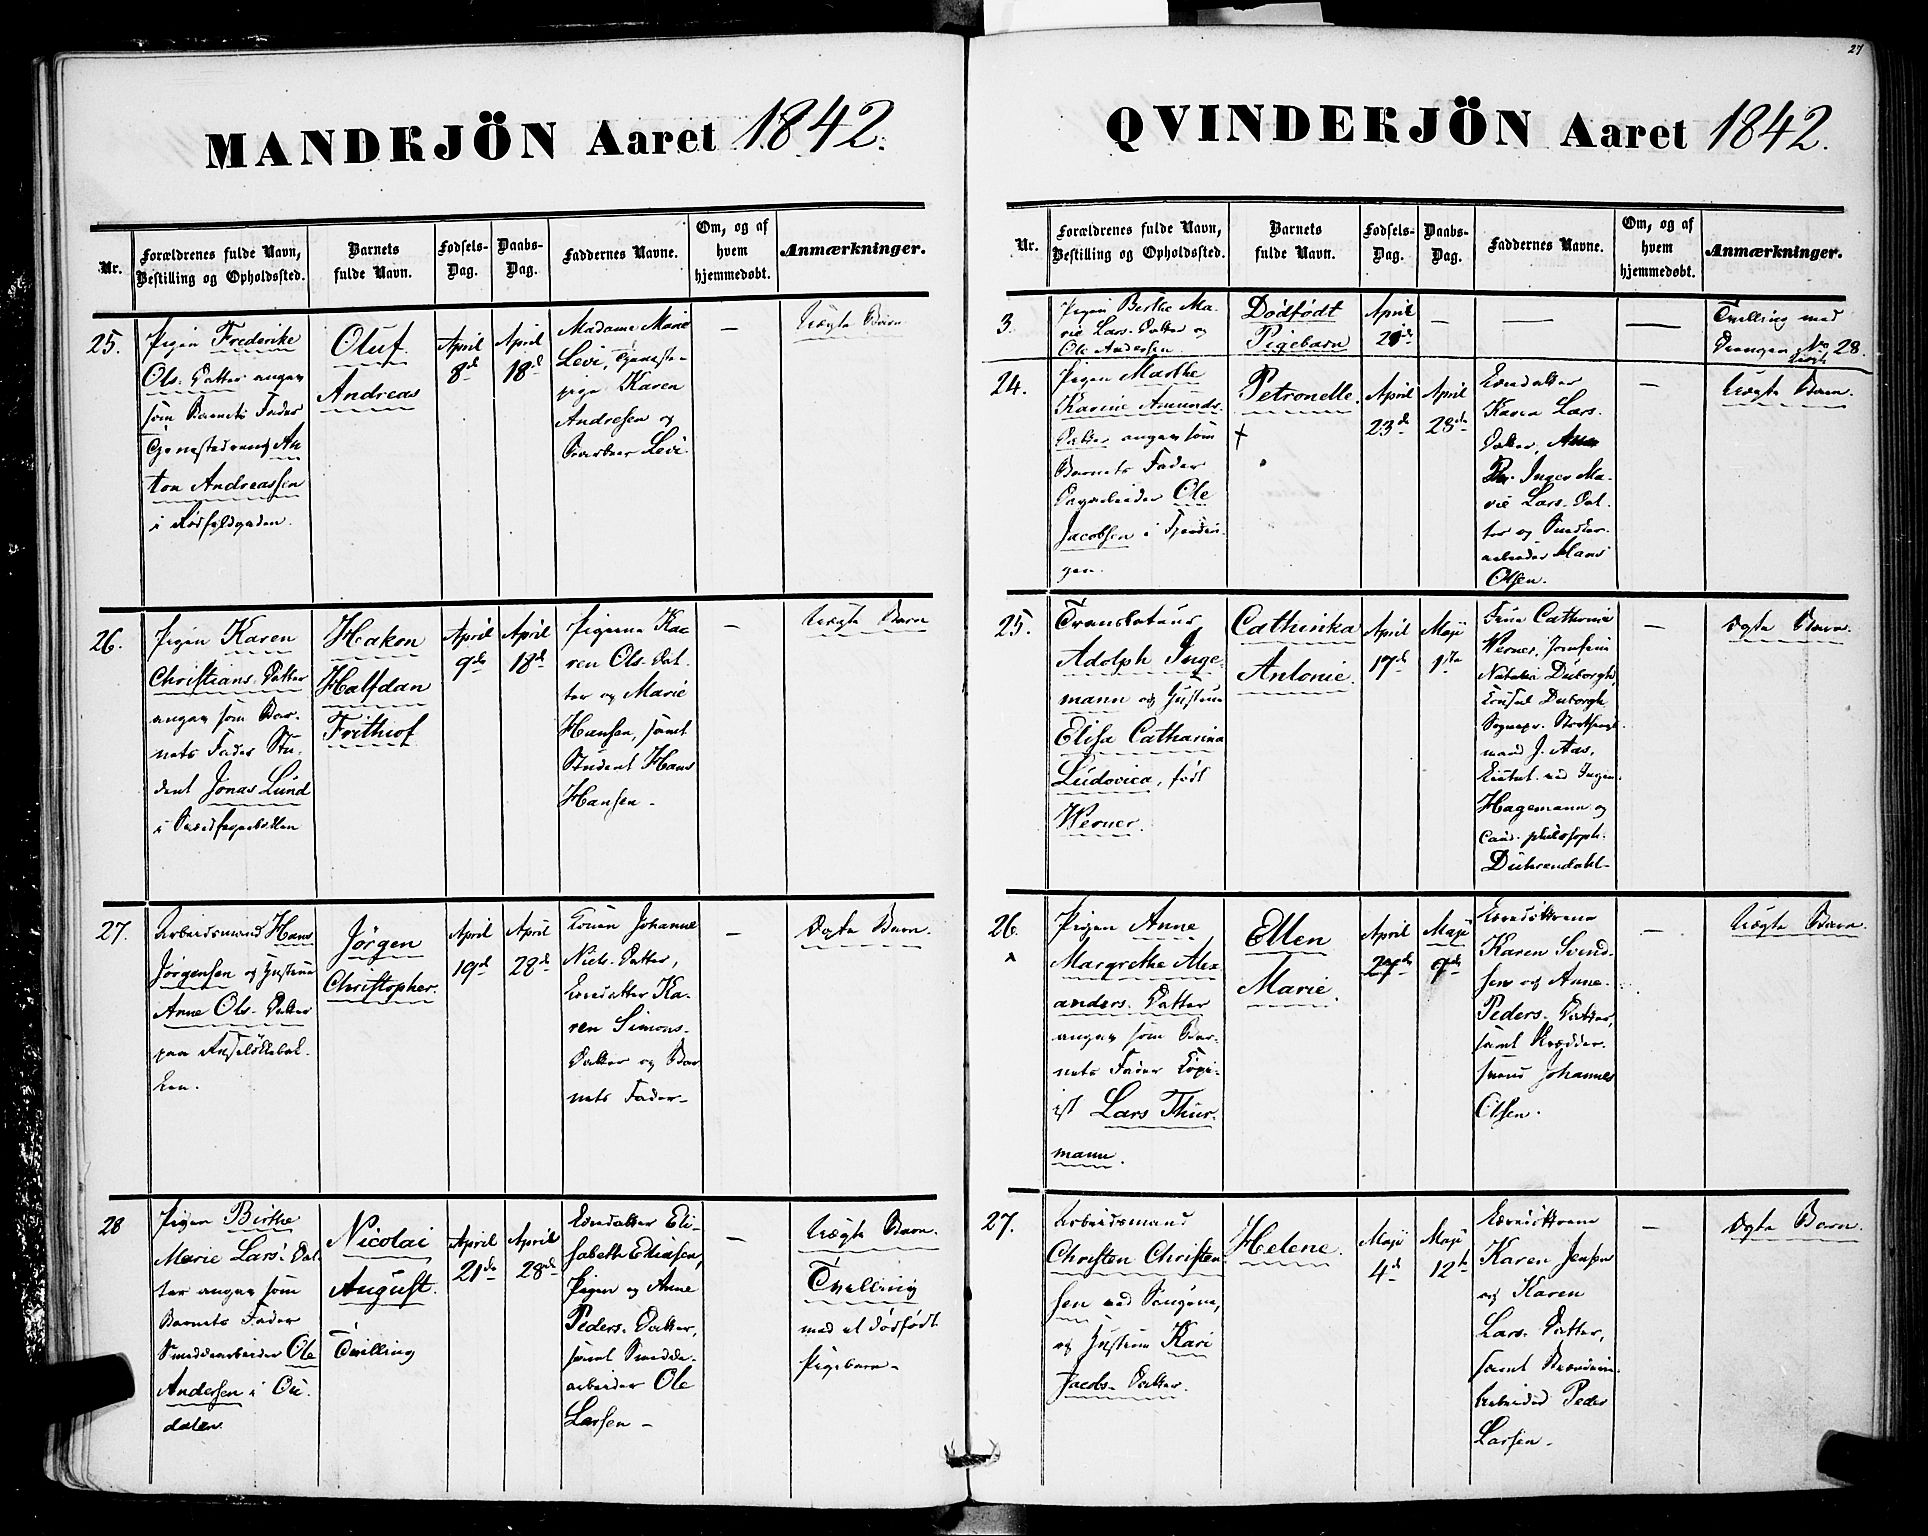 27
MANDKJÖN Aaret 1842.
Nr.
Forældrenes fulde Navn,
Bestilling og Opholdssted.
Barnets
fulde Navn.
Fødsels-
Dag.
Daabs-
Dag.
Faddernes Navne.
Om, og af
hvem
hjemmedøbt.
Anmærkninger.
25.
Pigen Frederike
Ols. Datter angav
som Barnets Fader
Tjenestedreng An
ton Andreassen
i
Oluf
Andreas
April
8de
April
18de
Madame Marie
Levi, Tjeneste-
pige Karen
Andresen og
Levi.
—
Uægte Barn
26.
Pigen Karen
Christians. Datter
angav som Bar-
nets Fader Stu-
dent Jonas Lund
i
Hakon
Halfdan
Frithiof
April
9de
April
18de
Pigerne Ka-
ren Ols. Dat-
ter og Marie
Hansen, samt
Student Hans
Hansen –
—
Uægte Barn
27.
Arbeidsmand Hans
Jørgensen og Hustrue
Anne Ols. Datter
paa
ken.
Jørgen
Christopher.
April
19de
April
28de
Konen Johanne
Niels. Datter,
Ka-
ren Simons-
Datter og Bar
nets Fader –
—
Ægte Barn.
28
Pigen Birthe
Marie Lars. Dat
ter angav som
Barnets Fader
Smeddearbeider Ole
Andersen i Ou
dalen.
Nicolai
August.
Tvilling
April
21de
April
28de
Eli-
sabeth Eliasen,
Pigen og Anne
Peders. Datter,
samt Smedde-
arbeider Ole
Larsen –
—
Uægte Barn.
Tvilling
med et dødfødt
Pigebarn –
QVINDEKJÖN Aaret 1842.
Nr.
Forældrenes fulde Navn,
Bestilling og Opholdssted.
Barnets
fulde Navn.
Fødsels-
Dag.
Daabs-
Dag.
Faddernes Navne.
Om, og af
hvem
hjemmedøbt.
Anmærkninger.
3.
Pigen Berthe Ma-
rie Lars. Datter og
Ole Andersen
Dødfødt
Pigebarn
April
21de
—
—
—
Tvilling med
Drengen No 28.
24.
Pigen Marthe
Karine Amunds-
Datter angav som
Barnets Fader
Ole
Jacobsen i Fjerdin-
gen.
Petronelle.
+
April
23de
April
28de
Karen Lars.
Datter,
Inger Ma-
rie Lars. Dat
ter og
arbeider Hans
Olsen.
—
Uægte Barn.
25.
Translateur
Adolph Inge-
mann og Hustrue
Elisa Catharina
Ludovica, født
Werner.
Cathinka
Antonie.
April
17de
Maji
1ste
Frue Catharina
Werner, Jomfrue
Natalia Duborgh,
Consul Duborgh
J. Aas,
Hagemann og
Cand. philosoph.
Duhrendahl –
—
Ægte Barn.
26.
Pigen Anne
Margrethe Alex
anders. Datter
angav som Bar-
nets Fader Copi-
ist Lars Thur
mann.
Ellen
Marie.
April
27de
Maji
Karen Svend-
sen og Anne
Peders. Datter,
samt Skrædder
svend Johannes
Olsen.
—
Uægte Barn.
27.
Arbeidsmand
Christen Christen
sen ved
og Hustrue Kari
Jacobs. Datter.
Helene.
Maji
4de
Maji
12te
Karen Jensen
og Karen
Lars. Datter,
samt
arbeider Peder
Larsen –
—
Ægte Barn.